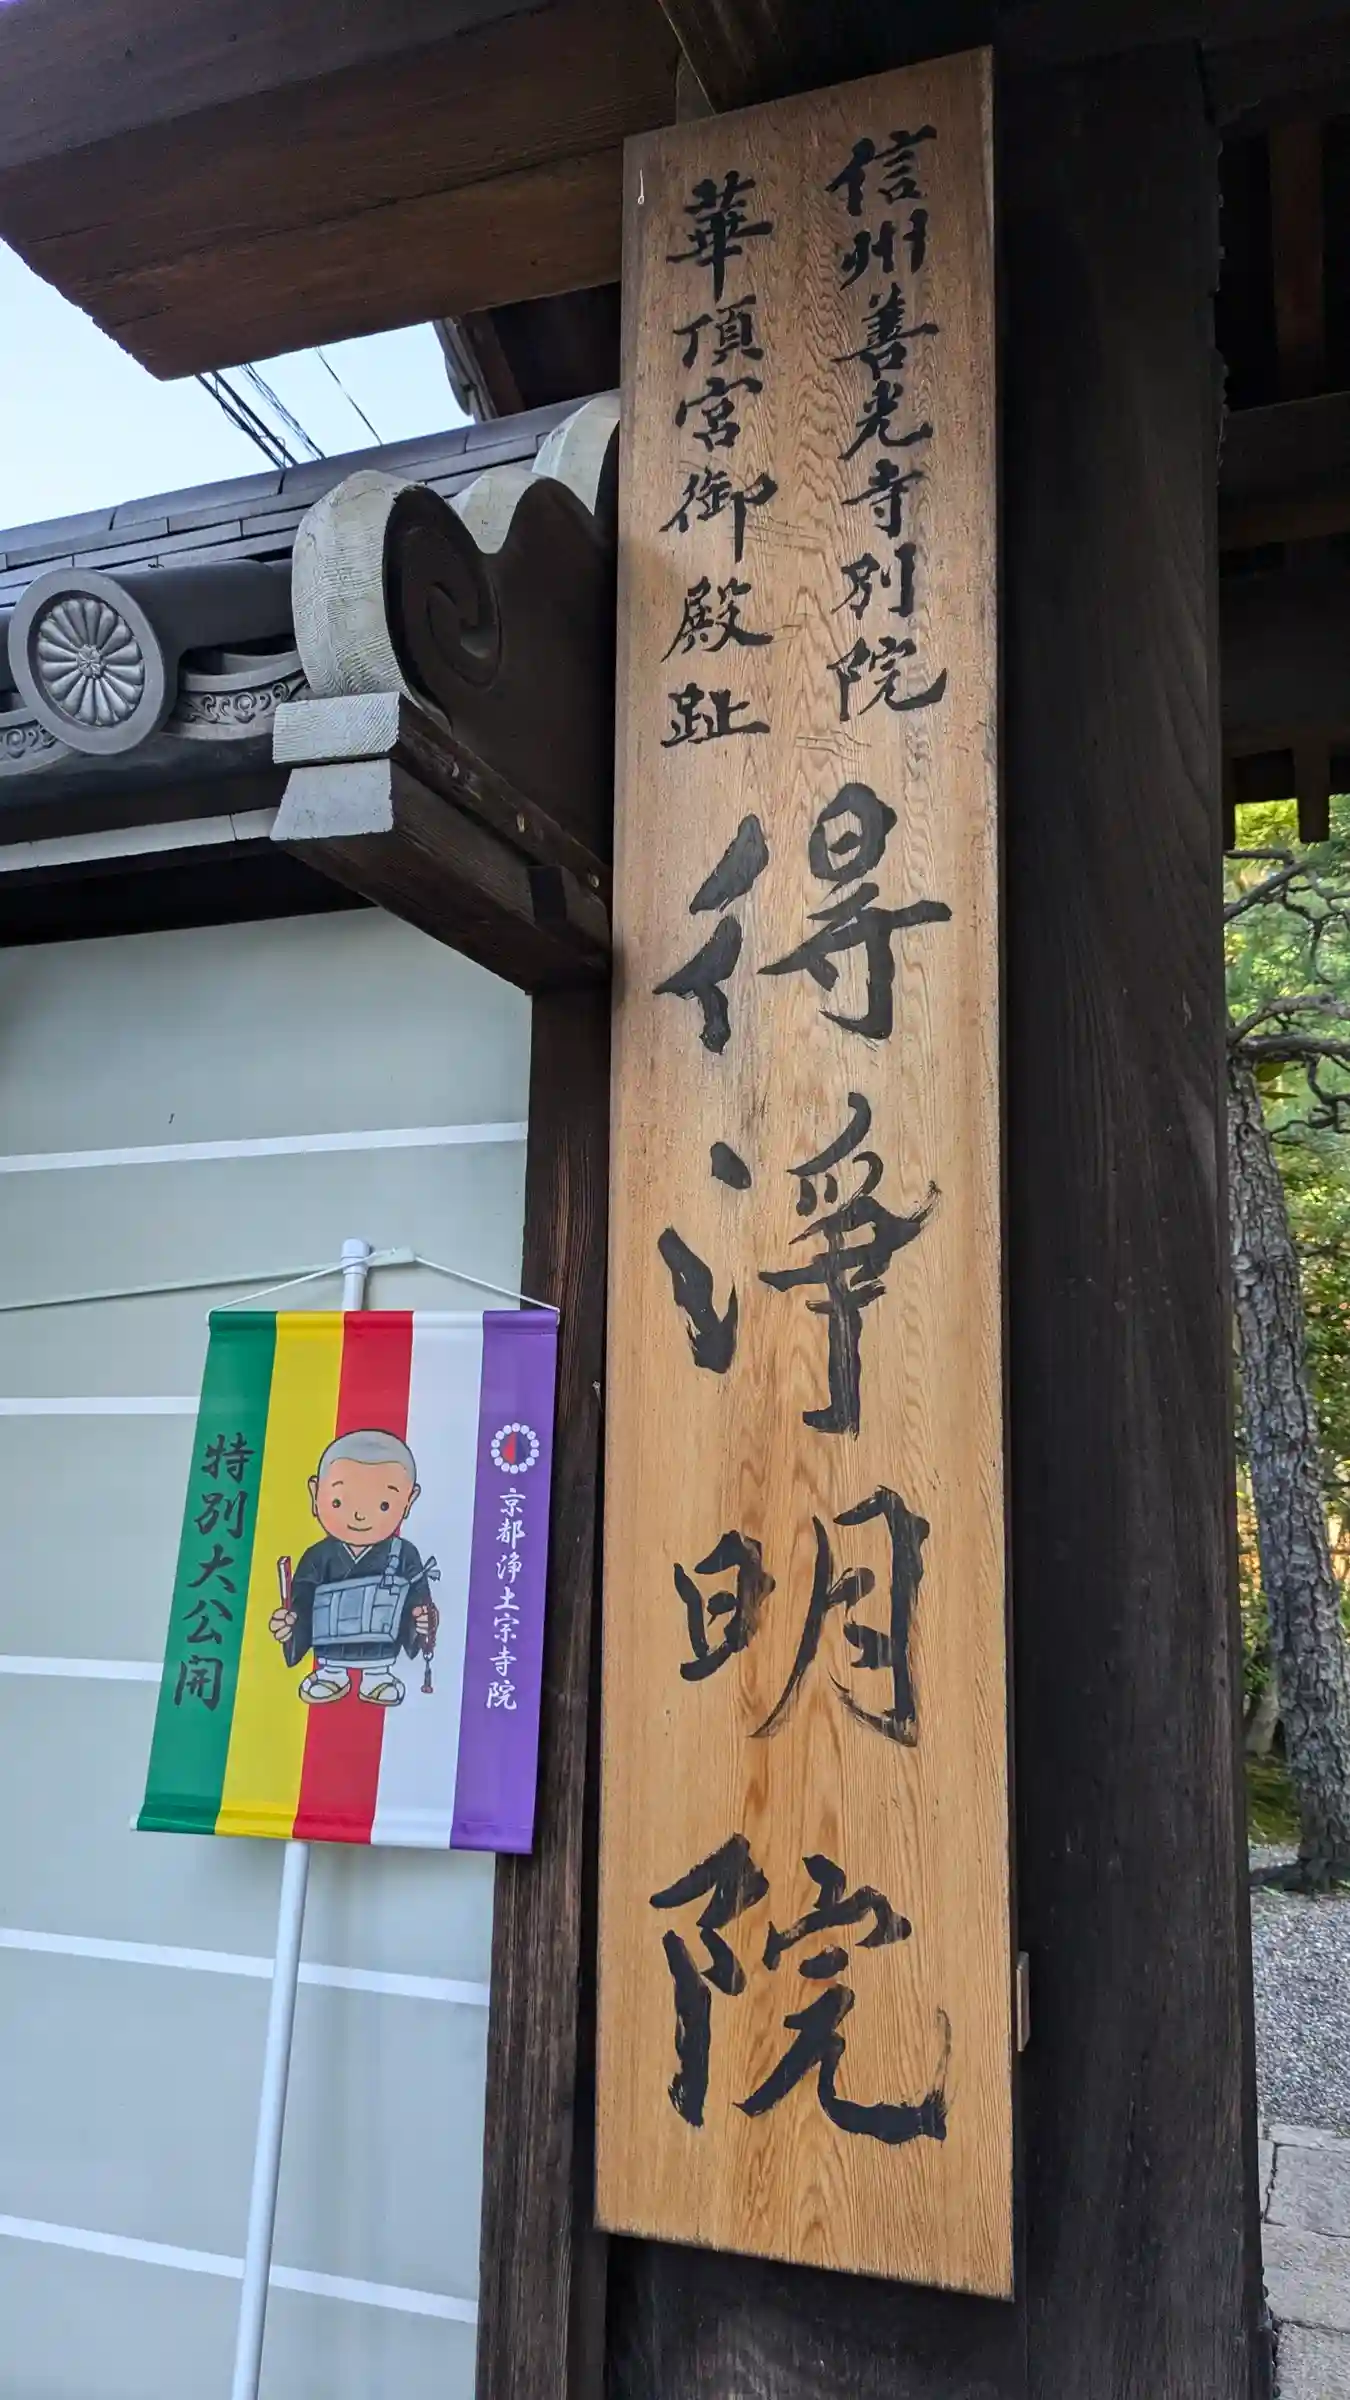 信州善光寺別院
華頂宮御殿趾
得淨明院
京都浄土宗寺院
特別大公開